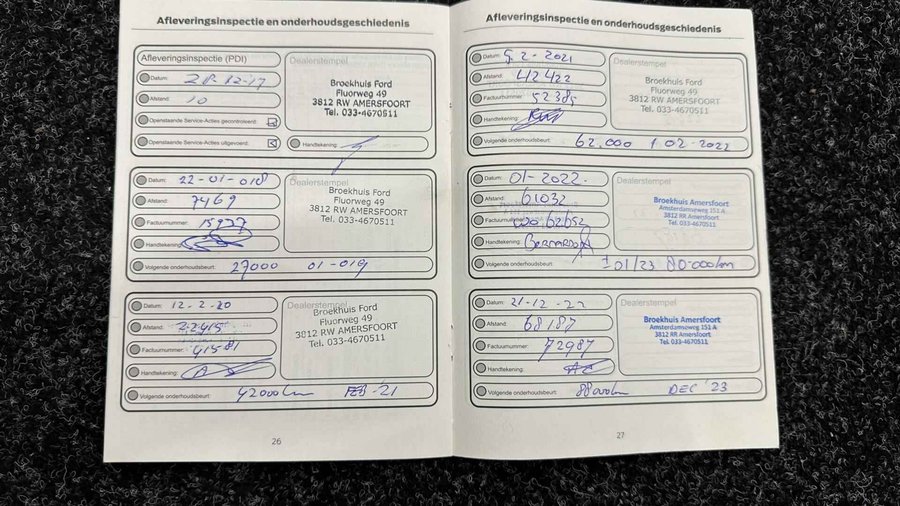 Afleveringsinspectie en onderhoudsgeschiedenis
Afleveringsinspectie (PDI)
Datum:
Afstand: 10
Openstaande Service-Acties gecontroleerd:
Openstaande Service-Acties uitgevoerd:
Dealerstempel
Broekhuis Ford
Fluorweg 49
3812 RW AMERSFOORT
Tel. 033-4670511
Handtekening:
Datum: 22-01-018
Afstand: 7469
Factuurnummer:
Handtekening:
Dealerstempel
Broekhuis Ford
Fluorweg 49
3812 RW AMERSFOORT
Tel. 033-4670511
Volgende onderhoudsbeurt: 27000 01-019
Datum: 12-2-20
Afstand: 22415
Factuurnummer: 41581
Handtekening:
Dealerstempel
Broekhuis Ford
Fluorweg 49
3812 RW AMERSFOORT
Tel. 033-4670511
Volgende onderhoudsbeurt: 42000km FEB-21
26
Afleveringsinspectie en onderhoudsgeschiedenis
Datum: 5-2-2021
Afstand: 42422
Factuurnummer: 52385
Handtekening:
Dealerstempel
Broekhuis Ford
Fluorweg 49
3812 RW AMERSFOORT
Tel. 033-4670511
Volgende onderhoudsbeurt: 62.000 1 02-2022
Datum: 01-2022.
Afstand: 61032
Factuurnummer: 62652
Handtekening:
Dealerstempel
Broekhuis Amersfoort
Amsterdamseweg 151 A
3812 RR Amersfoort
Tel. 033-4670511
Volgende onderhoudsbeurt: ± 01/23 80.000km
Datum: 21-12-22
Afstand: 68187
Factuurnummer: 72987
Handtekening:
Dealerstempel
Broekhuis Amersfoort
Amsterdamseweg 151 A
3812 RR Amersfoort
Tel. 033-4670511
Volgende onderhoudsbeurt: 88000km DEC '23
27